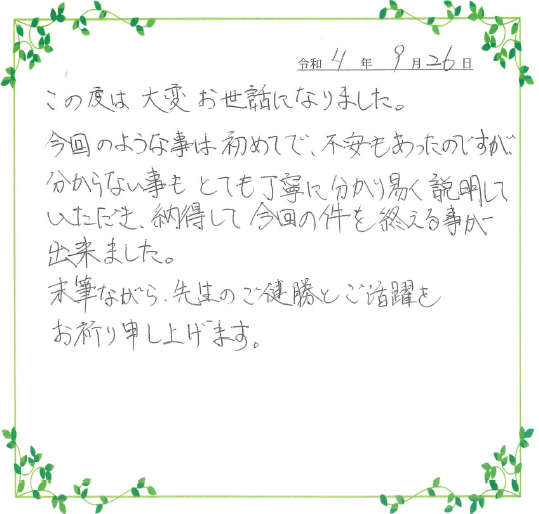 令和 4 年 9 月 26 日
この度は 大変 お世話になりました。
今回のような事は初めてで、不安もあったのですが、
分からない事も とても丁寧に分かり易く説明して
いただき、納得して 今回の件を 終える事が
出来ました。
末筆ながら、先生のご健勝とご活躍を
お祈り申し上げます。